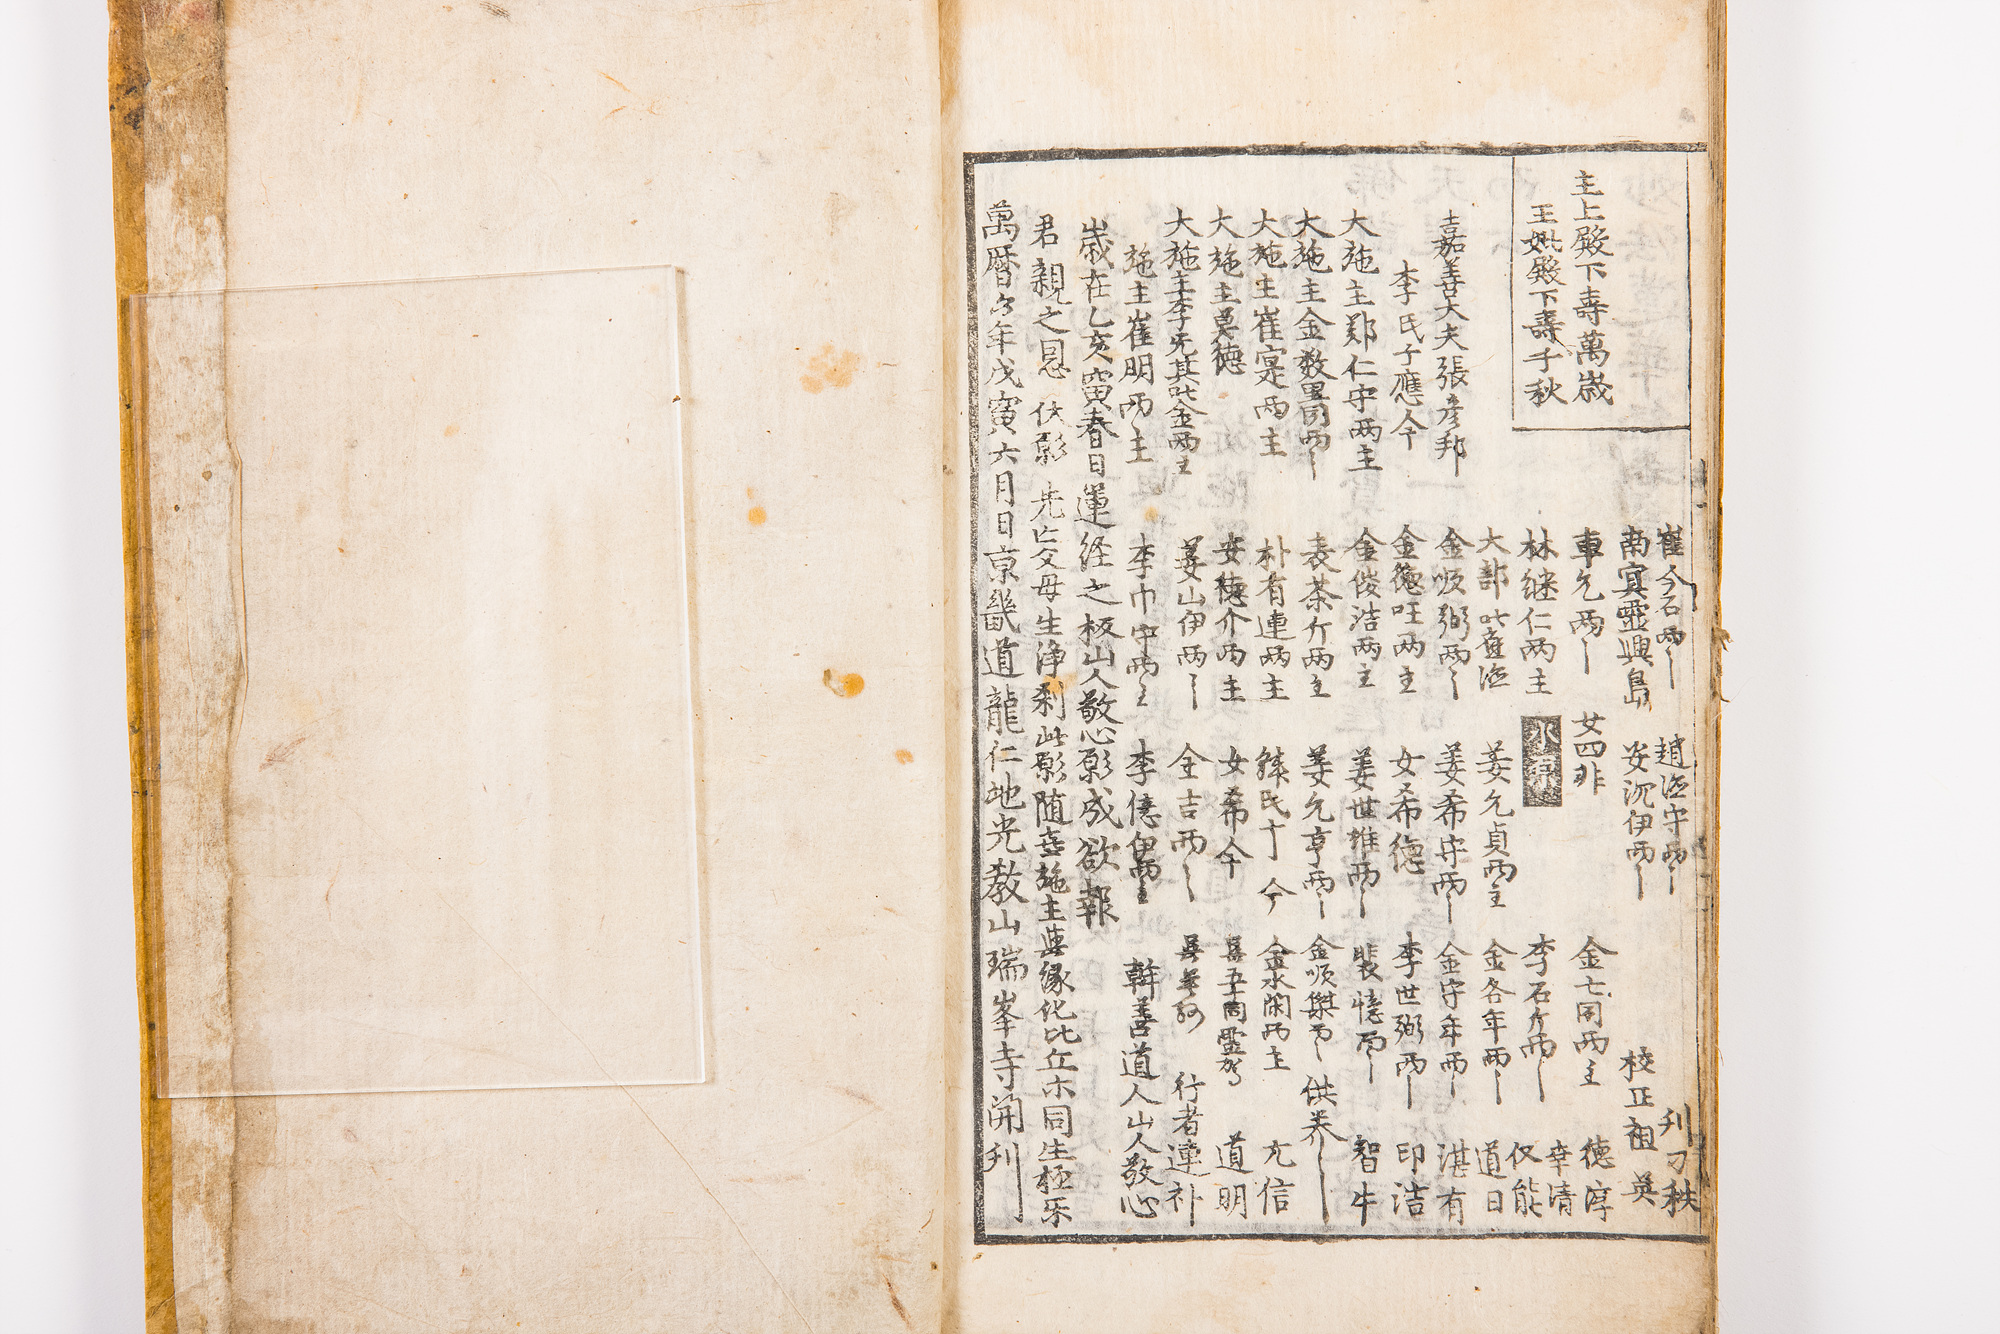 主上殿下壽萬歲
王妣殿下壽千秋
崔今石兩〻 趙海守兩〻 刊刀秩
南寘靈興島 安沉伊兩〻 校正祖英
車允兩〻 女四非 金七同兩主 德淳
林継仁兩主 李石介兩〻 幸清
仅能
大部 金各年兩〻 道日
姜允貞兩主
嘉善大夫張彥邦 金順弼兩〻 姜希守兩〻 金守年兩〻 湛有
李氏子應今 金德旺兩主 女希德 李世弼兩〻 印洁
大施主鄭仁守兩主 金俊浩兩主 姜世維兩〻 裴憶兩〻 智牛
大施主金数里同兩〻 表茶介兩主 姜允亨兩〻 金順傑兩〻 供养〻
大施主崔寔兩主 朴有連兩主 氏十今 金永閑兩主 尢信
大施主莫德 安德介兩主 女希今 道明
大施主李先其 金兩主 姜山伊兩〻 全吉兩〻 行者連补
施主崔明兩主 李巾守兩主 李億伊兩主 幹善道人山人敬心
歲在乙亥寅春日運経之板山人敬心願成欲報
君親之恩伏願先亡父母生净刹此願随喜施主與縁化比丘亦同生極乐
萬曆六年戊寅六月日京畿道龍仁地光教山瑞峯寺開刊